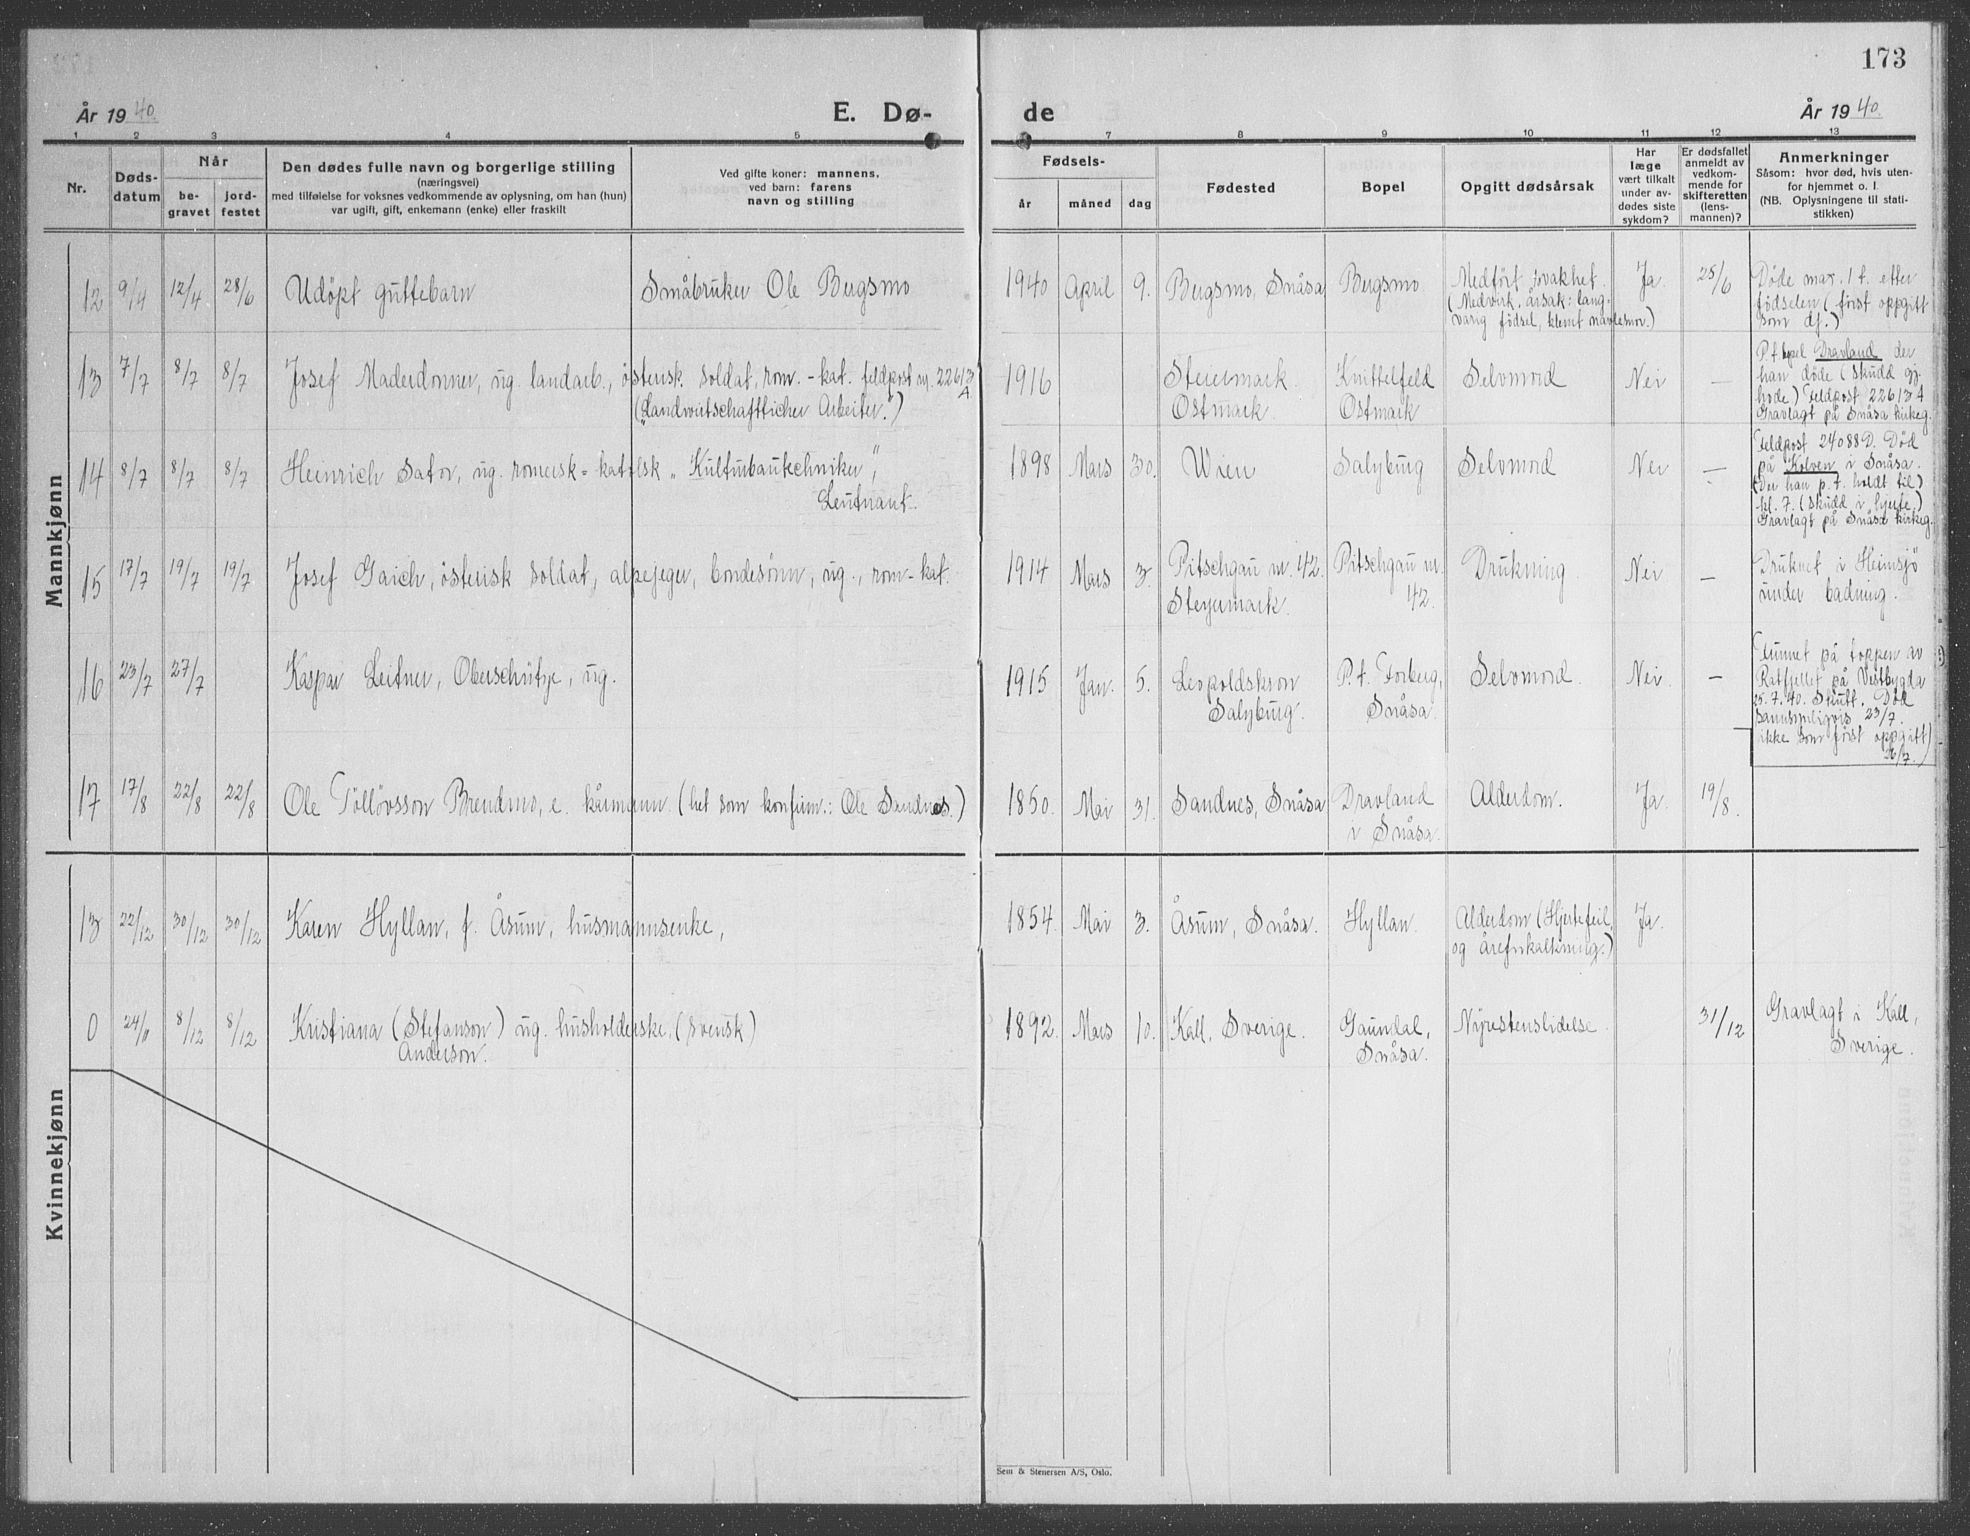 173
År 1940.
E. Dø-
de
År 1940.
1 2 3 4 5 7 8 9 10 11 12 13
Nr.
Døds-
datum
Når
be-
gravet
jord-
festet
Den dødes fulle navn og borgerlige stilling
(næringsvei)
med tilføielse for voksnes vedkommende av oplysning, om han (hun)
var ugift, gift, enkemann (enke) eller fraskilt
Ved gifte koner: mannens,
ved barn: farens
navn og stilling
Fødsels-
år måned dag
Fødested
Bopel
Opgitt dødsårsak
Har
læge
vært tilkalt
under av-
dødes siste
sykdom?
Er dødsfallet
anmeldt av
vedkom-
mende for
skifteretten
(lens-
mannen)?
Anmerkninger
Såsom: hvor død, hvis uten-
for hjemmet o. l.
(NB. Oplysningene til stati-
stikken)
Mannkjønn
12 9/4 12/4. 28/6 Udöpt guttebarn Småbruker Ole Bergsmo 1940 April 9. Bergsmo, Snåsa Bergsmo. Medfört svakhet. Ja 25/6
(Medvirk. årsak: lang-
varig födsel, klemt navlesnor.)
Døde max. 1 t. etter
födselen (först oppgitt
som df.)
13 7/7 8/7 8/7 Josef Maderdonner, ug. landarb., östersk. soldat, rom.-kat. feldpost nr. 22613
A
("Landwirtschaftlicher Arbeiter.")
1916 Steiermark Knittelfeld Selvmord Nei —
Ostmark. Ostmark
P.t. bopel Dravland der
han döde (skudd gj.
hode) Feldpost 22613A
Gravlagt på Snåsa kirkeg.
14 8/7 8/7 8/7 Heinrich Sator, ug. romersk-katolsk "Kulturbautechniker",
Leutnant.
1898 Mars 30. Wien Salzburg Selvmord Nei —
Feldpost 24088D. Död
på Kolven i Snåsa.
(Der han p.t. holdt til)
kl. 7. (skudd i hjerte.)
Gravlagt på Snåsa kirkeg.
15 17/7 19/7 19/7 Josef Gaich, östersk soldat, alpejeger, bondesönn, ug., rom-kat.
1914 Mars 3. Pitschgau nr. 42. Pitschgau nr. Drukning. Nei —
Steyermark. 42.
Druknet i Heimsjö
under badning.
16 23/7 27/7 Kaspar Leitner, Oberschütze, ug.
1915 Jan. 5. Leopoldskron P.t. Forberg, Selvmord. Nei. —
Salzburg. Snåsa.
Funnet på toppen av
på Vestbygda
25.7.40. Skutt. Död
sannsynligvis 23/7.
ikke som först oppgitt)
26/7.)
17 17/8 22/8 22/8 Ole Tollövsson Brendmo, e. kårmann. (het som konfirm.: Ole Sandnes.)
1850. Mai 31. Sandnes, Snåsa Dravland Alderdom. Ja 19/8.
i Snåsa.
Kvinnekjønn
13 22/12 30/12 30/12 Karen Hyllan, f. Åsum, husmannsenke,
1854. Mai 3. Åsum, Snåsa. Hyllan. Alderdom (Hjertefeil Ja.
og årefnkalkning.)
0 24/11 8/12 8/12 Kristiana (Stefanson) ug. husholderske. (svensk)
Anderson.
1892. Mars 10. Kall, Sverige. Gaundal, Nyrestenslidelse. 31/12
Snåsa.
Gravlagt i Kall,
Sverige.
Sem & Stenersen A/S, Oslo.